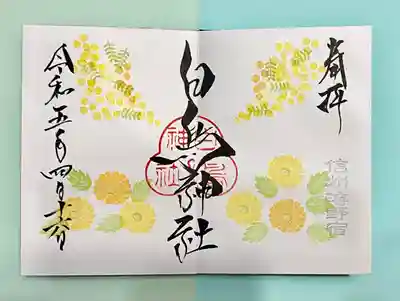 奉拝
信州海野宿
白鳥神社
白鳥
神社
令和五年四月十六日